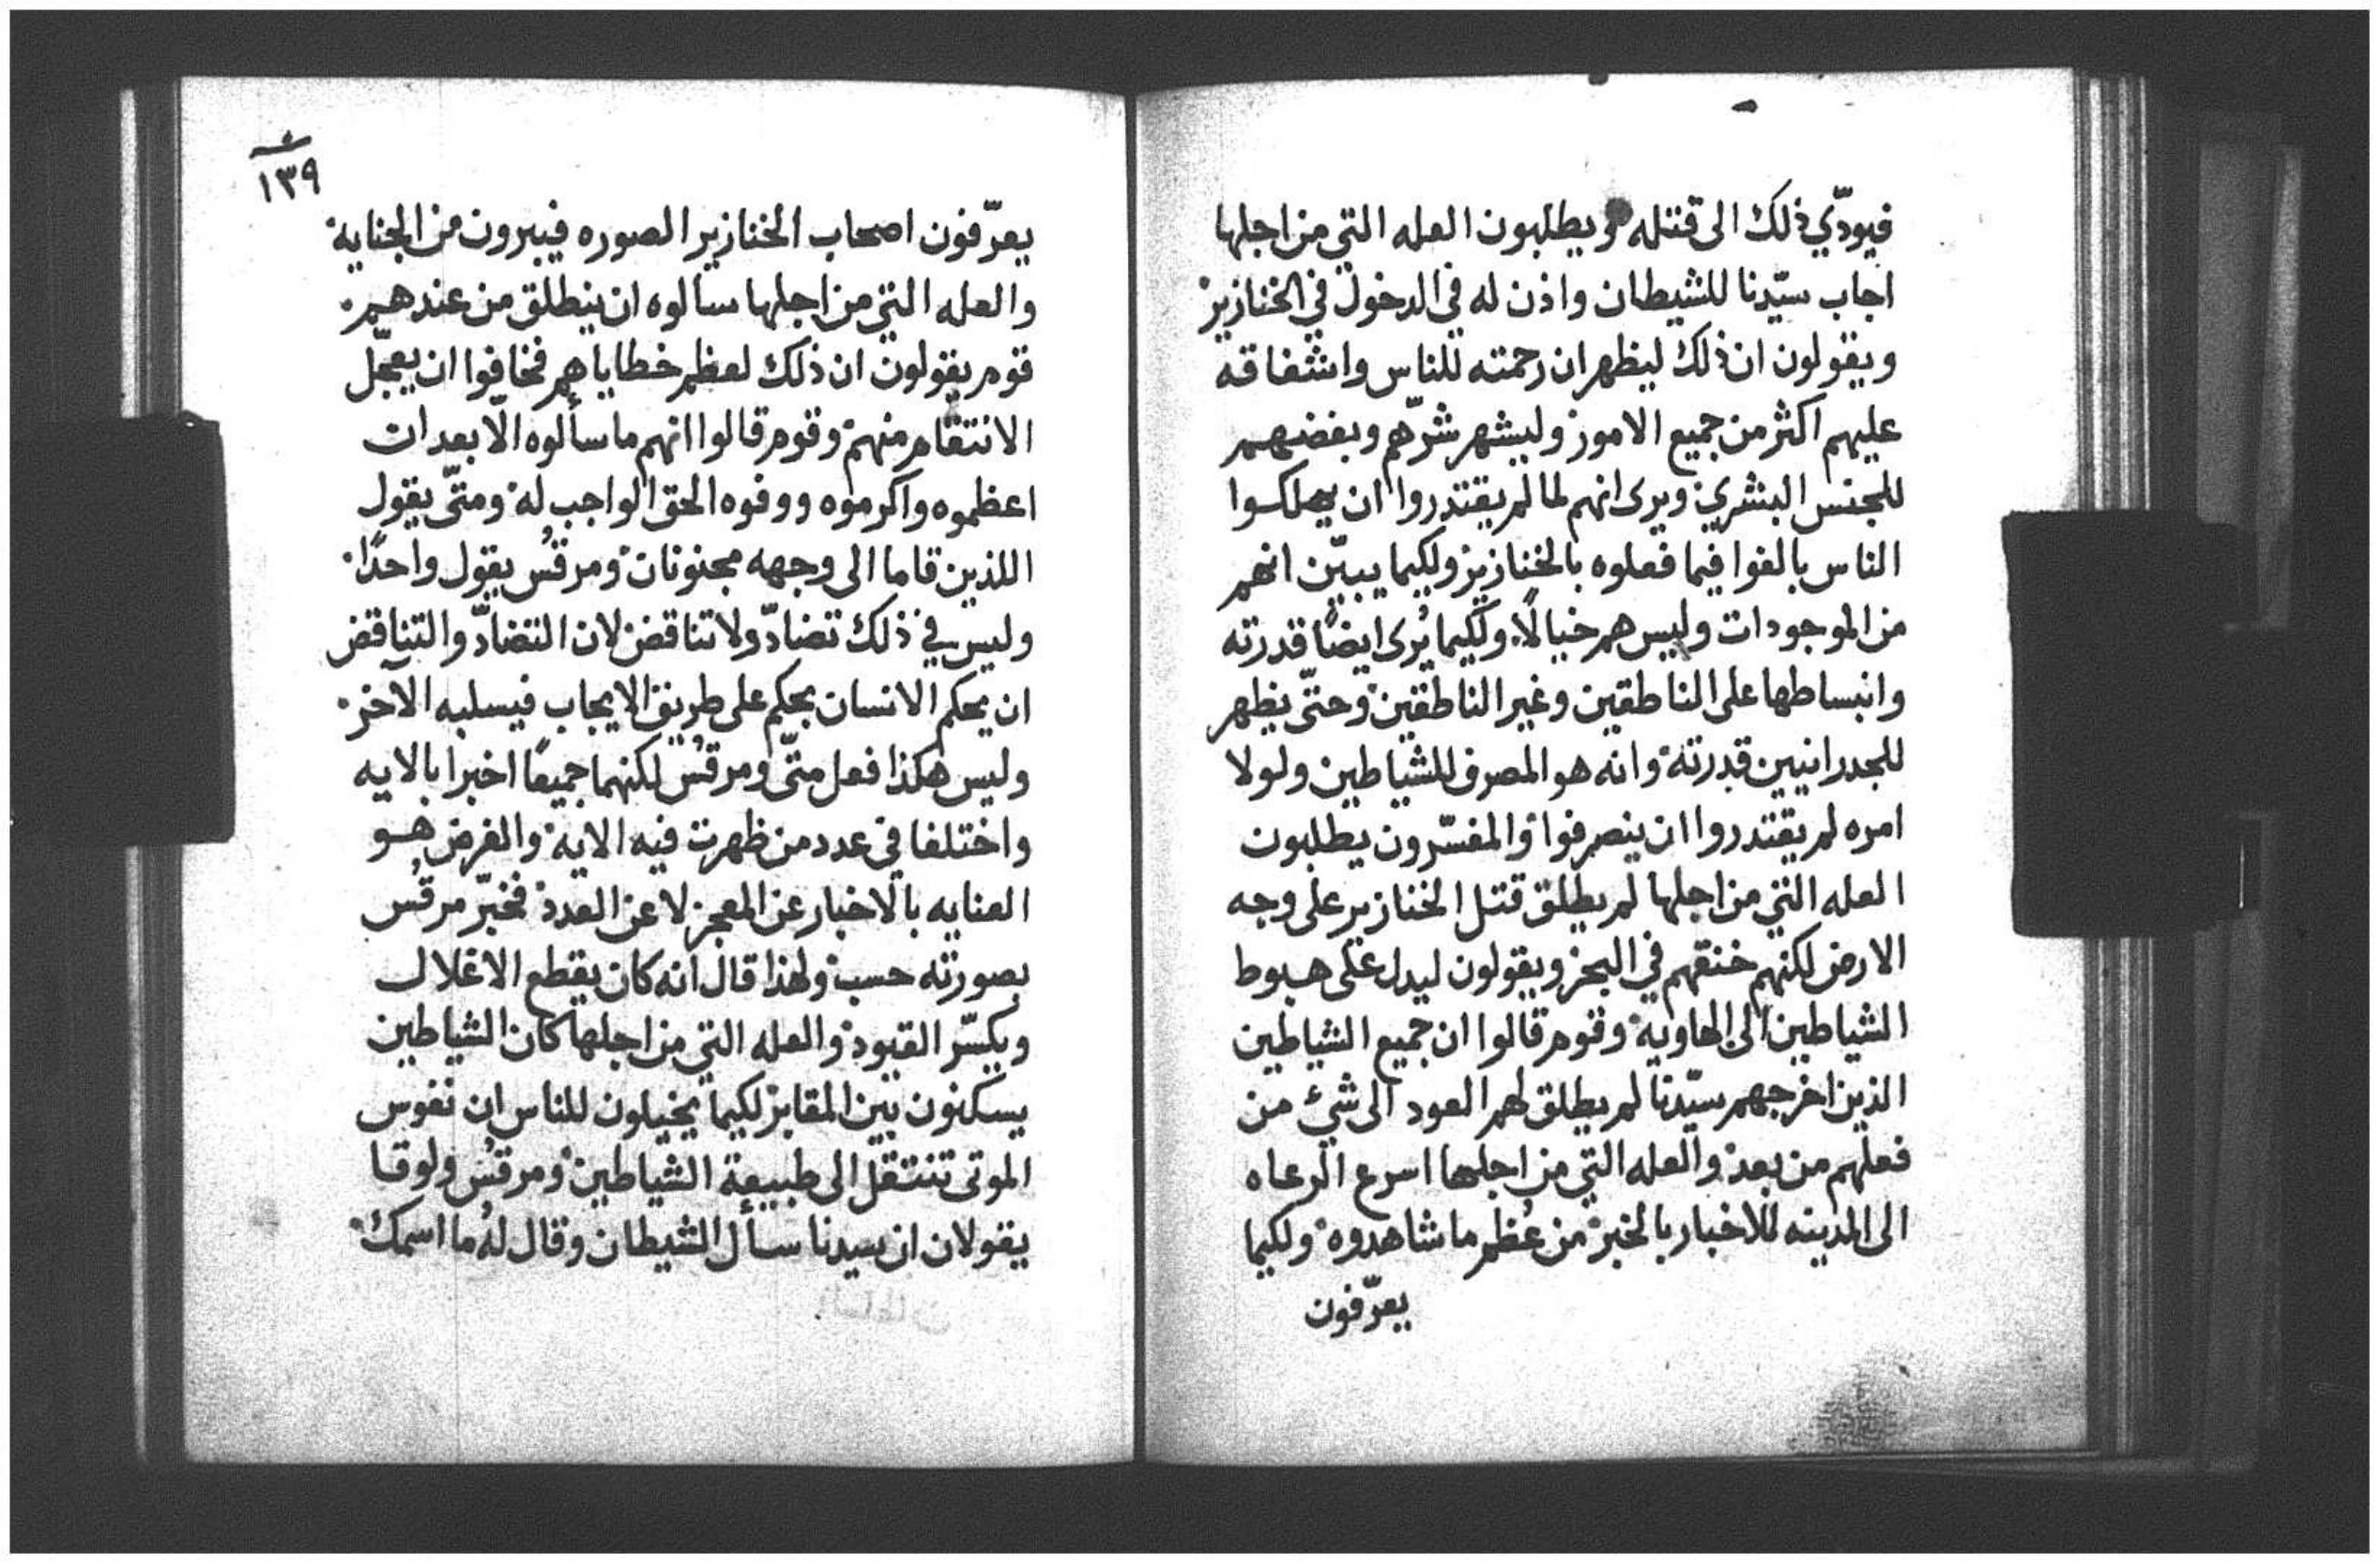 فيودّي ذلك الى قتله ويطلبون العله التي من اجلها
اجاب سيّدنا للشيطان واذن له في الدخول في الخنازير
ويقولون ان ذلك ليظهران رحمته للناس واشفاقه
عليهم اكثر من جميع الامور وليشهر شرّهم وبغضهم
للجنس البشري ويرى انهم لما لم يقتدروا ان يهلكوا
الناس بالغوا فيما فعلوه بالخنازير ولكيما يبيّن انهم
من الموجودات وليس هم خيالًا ولكيما يُرى ايضًا قدرته
وانبساطها على الناطقين وغير الناطقين وحتّى يظهر
للجدرانيين قدرته وانه هو المصرف للشياطين ولولا
امره لم يقتدروا ان ينصرفوا والمفسّرون يطلبون
العله التي من اجلها لم يطلق قتل الخنازير على وجه
الارض لكنهم خنقهم في البحر ويقولون ليدل على هبوط
الشياطين الى الهاوية وقوم قالوا ان جميع الشياطين
الذين اخرجهم سيّدنا لم يطلق لهم العود الى شيْ من
فعلهم من بعد والعله التي من اجلها اسرع الرعاه
الى المدينه للاخبار بالخبر من عُظم ما شاهدوه ولكيما
يعرّفون
١٣٩
يعرّفون اصحاب الخنازير الصوره فيبرون من الجناية
والعله التي من اجلها سالوه ان ينطلق من عندهم
قوم يقولون ان ذلك لعظم خطاياهم فخافوا ان يعجّل
الانتقام منهم وقوم قالوا انهم ما سألوه الّا بعد ان
اعظموه واكرموه ووفوه الحق الواجب له ومتّى يقول
اللذين قاما الى وجهه مجنونان ومرقُس يقول واحدًا
وليس في ذلك تضادّ ولا تناقض لان التضادّ والتناقض
ان يحكم الانسان بحكم على طريق الايجاب فيسلبه الآخر
وليس هكذا فعل متّى ومرقُس لكنهما جميعًا اخبرا بالايه
واختلفا في عدد من ظهرت فيه الاية والغرض هو
العنايه بالاخبار عن المعجز لا عن العدد فخبّر مرقُس
بصورته حسب ولهذا قال انه كان يقطع الاغلال
ويكسّر القيود والعله التي من اجلها كان الشياطين
يسكنون بين المقابر لكيما يخيلون للناس ان نفوس
الموتى تنتقل الى طبيعة الشياطين ومرقُس ولوقا
يقولان ان سيدنا سأل الشيطان وقال لهُ ما اسمك